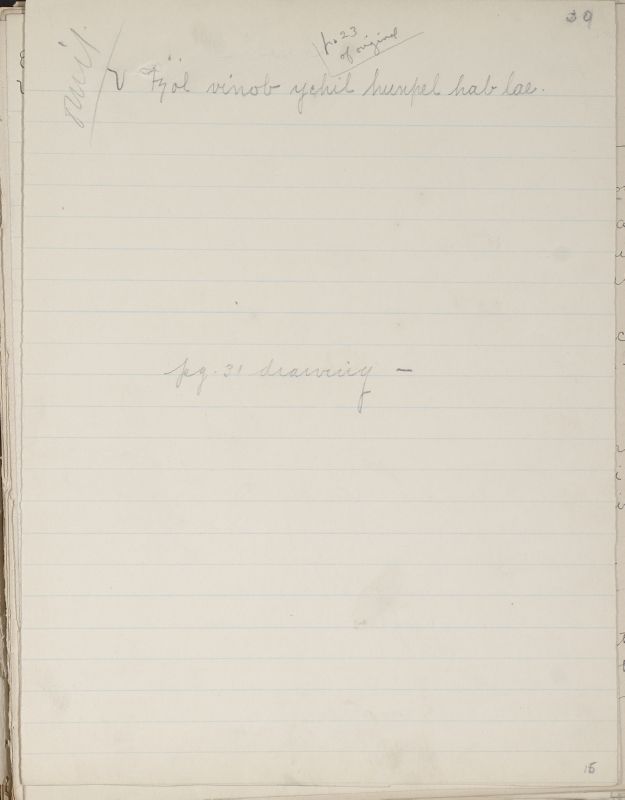 39
pg. 23
of original
omit.
vinob ychil hunpel hab lae.
pg. 31 drawing —
15